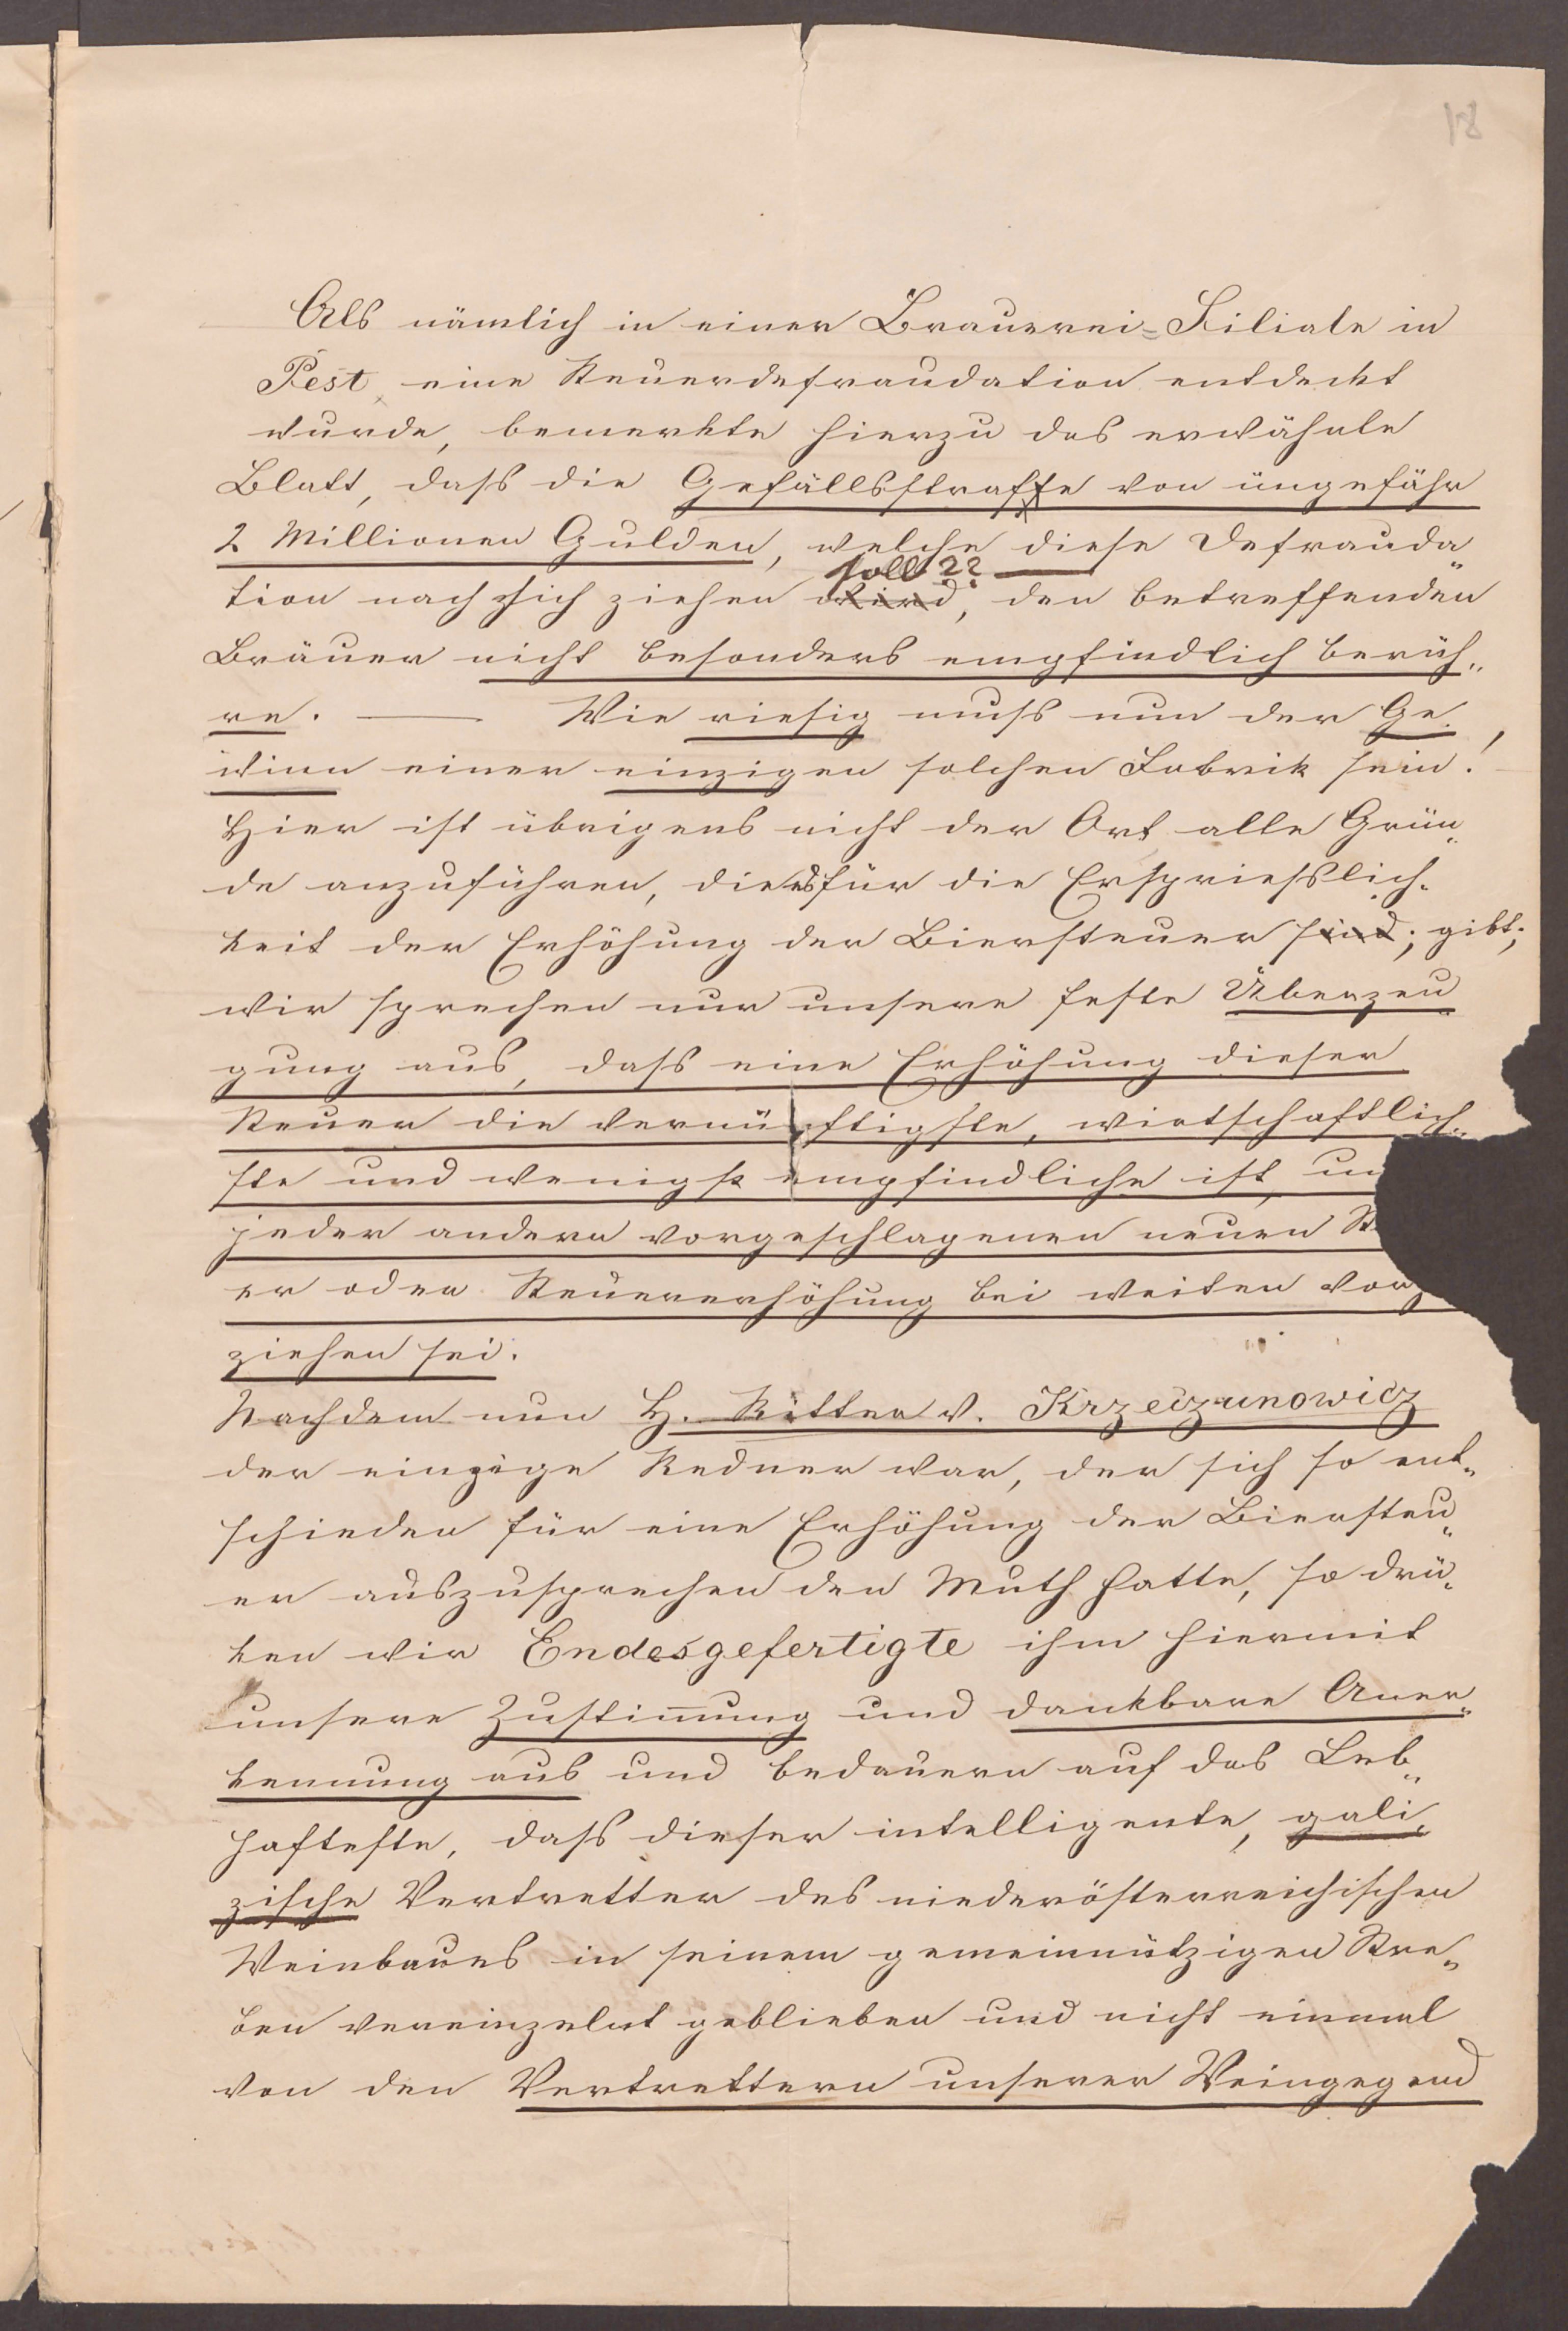 18
Als nämlich in einer Brauerei=Filiale in
Pest, eine Steuerdefraudation entdeckt
wurde, bemerkte hierzu das erwähnte
Blatt, daſs die Gefällsstraffe von ungefähr
2 Millionen Gulden, welche diese Defrauda„
soll??
tion nach sich ziehen wird, den betreffenden
Bräuer nicht besonders empfindlich berüh„
re. — Wie riesig muſs nun der Ge„
winn einer einzigen solchen Fabrik sein!
Hier ist übrigens nicht der Ort alle Grün„
de anzuführen, die es für die Ersprieſslich„
keit der Erhöhung der Biersteuer sind; gibt;
wir sprechen nur unsere feste Überzeu„
gung aus, daſs eine Erhöhung dieser
Steuer die vernünftigste, wirtschaftlich„
ste und wenigst empfindliche ist, un
jeder andern vorgeschlagenen neuen St
er oder Steuererhöhung bei weiten vorz
ziehen sei.
Nachdem nun H. Ritter v. Krzeczunowicz
der einzige Redner war, der sich so ent„
schieden für eine Erhöhung der Biersteu„
er auszusprechen den Muth hatte, so drü„
ken wir Endesgefertigte ihm hiermit
unsere Zustim̄ung und dankbare Aner„
kennung aus und bedauern auf das Leb„
hafteste, daſs dieser intelligente, gali„
zische Vertretter des niederösterreichischen
Weinbaues in seinem gemeinnützigen Stre„
ben vereinzelnt geblieben und nicht einmal
von den Vertrettern unserer Weingegend